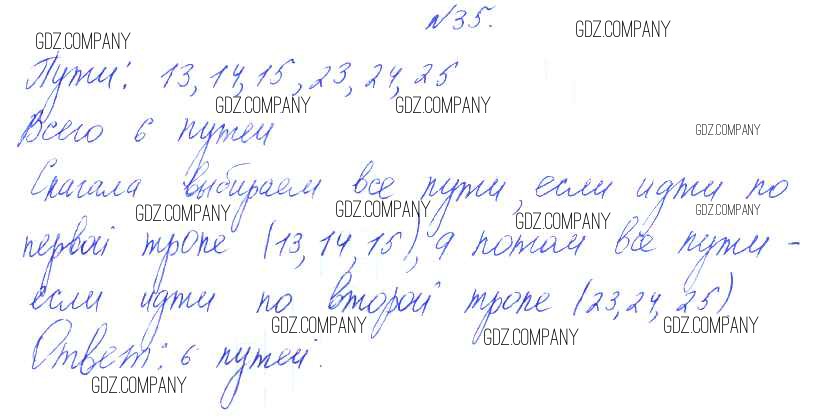 №35.
GDZ.COMPANY GDZ.COMPANY
Пути: 13, 14, 15, 23, 24, 25
GDZ.COMPANY GDZ.COMPANY
Всего 6 путей
GDZ.COMPANY
Сначала выбираем все пути, если идти по
GDZ.COMPANY GDZ.COMPANY GDZ.COMPANY GDZ.COMPANY
первой тропе (13, 14, 15), а потом все пути -
если идти по второй тропе (23, 24, 25)
GDZ.COMPANY GDZ.COMPANY GDZ.COMPANY
Ответ: 6 путей.
GDZ.COMPANY